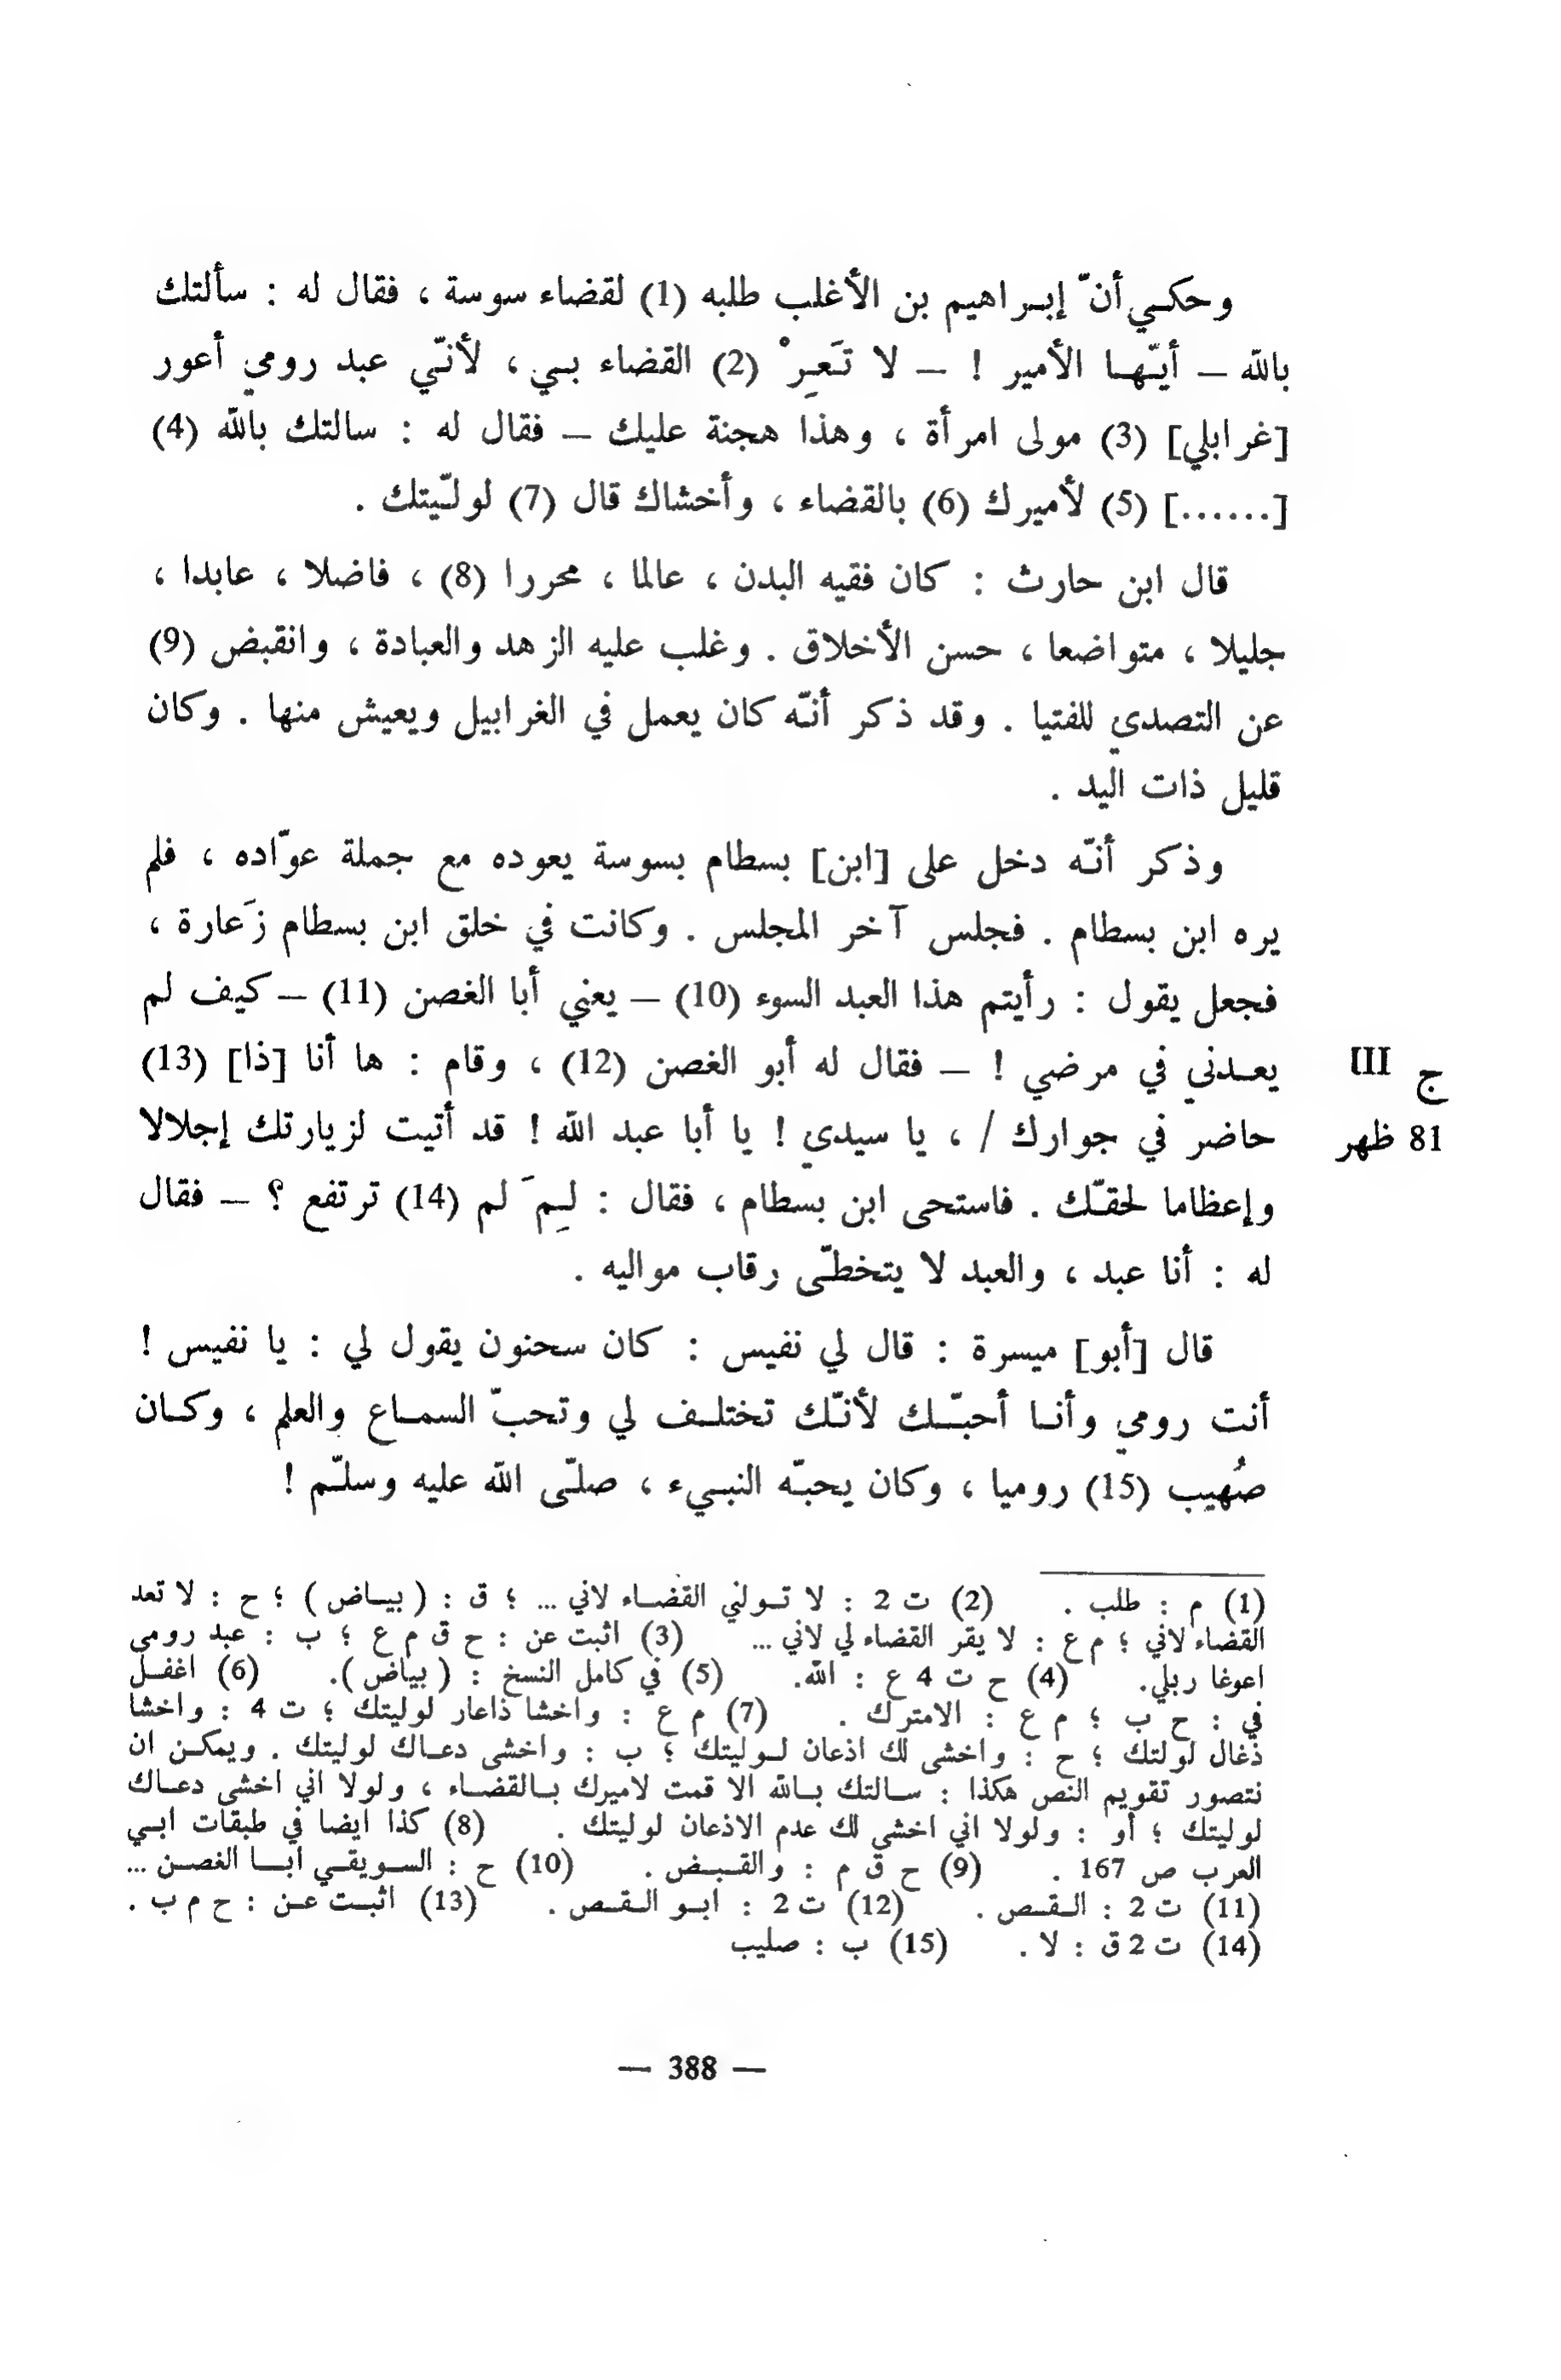 وحكي أنّ إبراهيم بن الأغلب طلبه (1) لقضاء سوسة ، فقال له : سألتك
بالله – أيّها الأمير ! – لا تَعِرْ (2) القضاء بي ، لأنّي عبد رومي أعور
[غرابلي] (3) مولى امرأة ، وهذا هجنة عليك – فقال له : سالتك بالله (4)
[......] (5) لأميرك (6) بالقضاء ، وأخشاك قال (7) لولّيتك .
قال ابن حارث : كان فقيه البدن ، عالما ، محررا (8) ، فاضلا ، عابدا ،
جليلا ، متواضعا ، حسن الأخلاق . وغلب عليه الزهد والعبادة ، وانقبض (9)
عن التصدي للفتيا . وقد ذكر أنّه كان يعمل في الغرابيل ويعيش منها . وكان
قليل ذات اليد .
وذكر أنّه دخل على [ابن] بسطام بسوسة يعوده مع جملة عوّاده ، فلم
يره ابن بسطام . فجلس آخر المجلس . وكانت في خلق ابن بسطام زَعارة ،
فجعل يقول : رأيتم هذا العبد السوء (10) – يعني أبا الغصن (11) – كيف لم
يعدني في مرضي ! – فقال له أبو الغصن (12) ، وقام : ها أنا [ذا] (13)
ج III
حاضر في جوارك / ، يا سيدي ! يا أبا عبد الله ! قد أتيت لزيارتك إجلالا
81 ظهر
وإعظاما لحقّك . فاستحى ابن بسطام ، فقال : لِمَ لم (14) ترتفع ؟ – فقال
له : أنا عبد ، والعبد لا يتخطّى رقاب مواليه .
قال [أبو] ميسرة : قال لي نفيس : كان سحنون يقول لي : يا نفيس !
أنت رومي وأنا أحبّك لأنّك تختلف لي وتحبّ السماع والعلم ، وكان
صُهيب (15) روميا ، وكان يحبّه النبيء ، صلّى الله عليه وسلّم !
(1) م : طلب . (2) ت 2 : لا تولني القضاء لاني ... ؛ ق : ( بياض ) ؛ ح : لا تعد
القضاء لاني ؛ م ع : لا يقر القضاء لي لاني ... (3) اثبت عن : ح ق م ع ؛ ب : عبد رومي
اعوغا ربلي. (4) ح ت 4 ع : الله. (5) في كامل النسخ : ( بياض ). (6) اغفل
في : ح ب ؛ م ع : الامترك . (7) م ع : واخشا ذاعار لوليتك ؛ ت 4 : واخشا
ذغال لولتك ؛ ح : واخشى لك اذعان لوليتك ؛ ب : واخشى دعاك لوليتك . ويمكن ان
نتصور تقويم النص هكذا : سالتك بالله الا قمت لاميرك بالقضاء ، ولولا اني اخشى دعاك
لوليتك ؛ أو : ولولا اني اخشى لك عدم الاذعان لوليتك . (8) كذا ايضا في طبقات ابي
العرب ص 167 . (9) ح ق م : والقبض . (10) ح : السويقي أبا الغصن ...
(11) ت 2 : القص . (12) ت 2 : ابو القص . (13) اثبت عن : ح م ب .
(14) ت 2 ق : لا . (15) ب : صليب
— 388 —